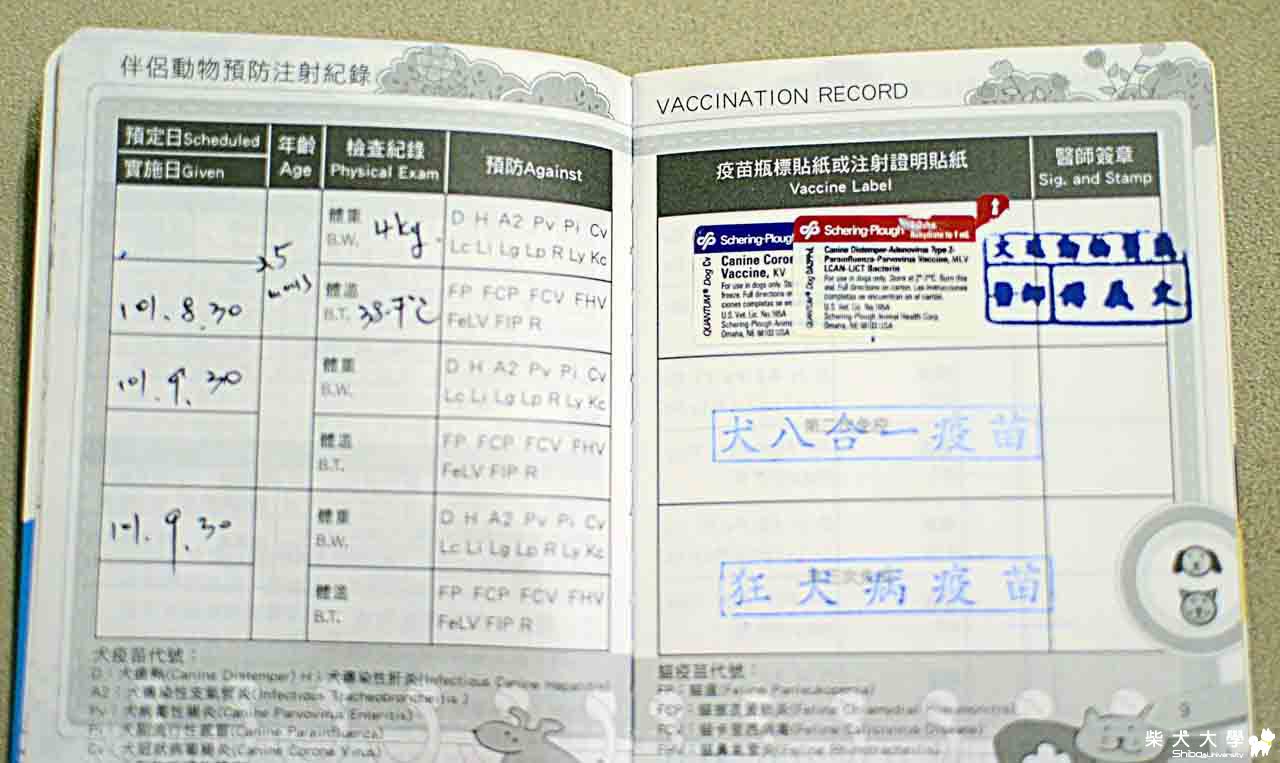 伴侶動物預防注射紀錄
預定日Scheduled
實施日Given
年齡
Age
檢查紀錄
Physical Exam
預防Against
體重
B.W. 4kg
D H A2 Pv Pi Cv
Lc Li Lg Lp R Ly Kc
101.8.30
體溫
B.T.
FP FCP FCV FHV
FeLV FIP R
101.9.30
體重
B.W.
D H A2 Pv Pi Cv
Lc Li Lg Lp R Ly Kc
體溫
B.T.
FP FCP FCV FHV
FeLV FIP R
101.9.30
體重
B.W.
D H A2 Pv Pi Cv
Lc Li Lg Lp R Ly Kc
體溫
B.T.
FP FCP FCV FHV
FeLV FIP R
犬疫苗代號：
D：犬瘟熱(Canine Distemper) H：犬傳染性肝炎(Infectious Canine Hepatitis)
A2：犬傳染性支氣管炎(Infectious Tracheobronchitis)
Pv：犬病毒性腸炎(Canine Parvovirus Enteritis)
Pi：犬副流行性感冒(Canine Parainfluenza)
Cv：犬冠狀病毒腸炎(Canine Corona Virus)
VACCINATION RECORD
疫苗瓶標貼紙或注射證明貼紙
Vaccine Label
醫師簽章
Sig. and Stamp
Schering-Plough
Canine Coron
Vaccine, KV
For use in dogs only.
U.S. Vet. Lic. No.165A
Schering-Plough Anima
Omaha, NE 68103 USA
QUANTUM® Dog Cv
Schering-Plough
Rehydrate to 1 mL
Canine Distemper-Adenovirus Type 2-
Parainfluenza-Parvovirus Vaccine, MLV
QUANTUM® Dog DA2PPvL
For use in dogs only.
U.S. Vet. Lic. No.165A
Schering-Plough Animal Health Corp.
Omaha, NE 68103 USA
醫師
犬八合一疫苗
狂犬病疫苗
貓疫苗代號：
FP：貓瘟(Feline Panleukopenia)
9
柴犬大學
Shiba University